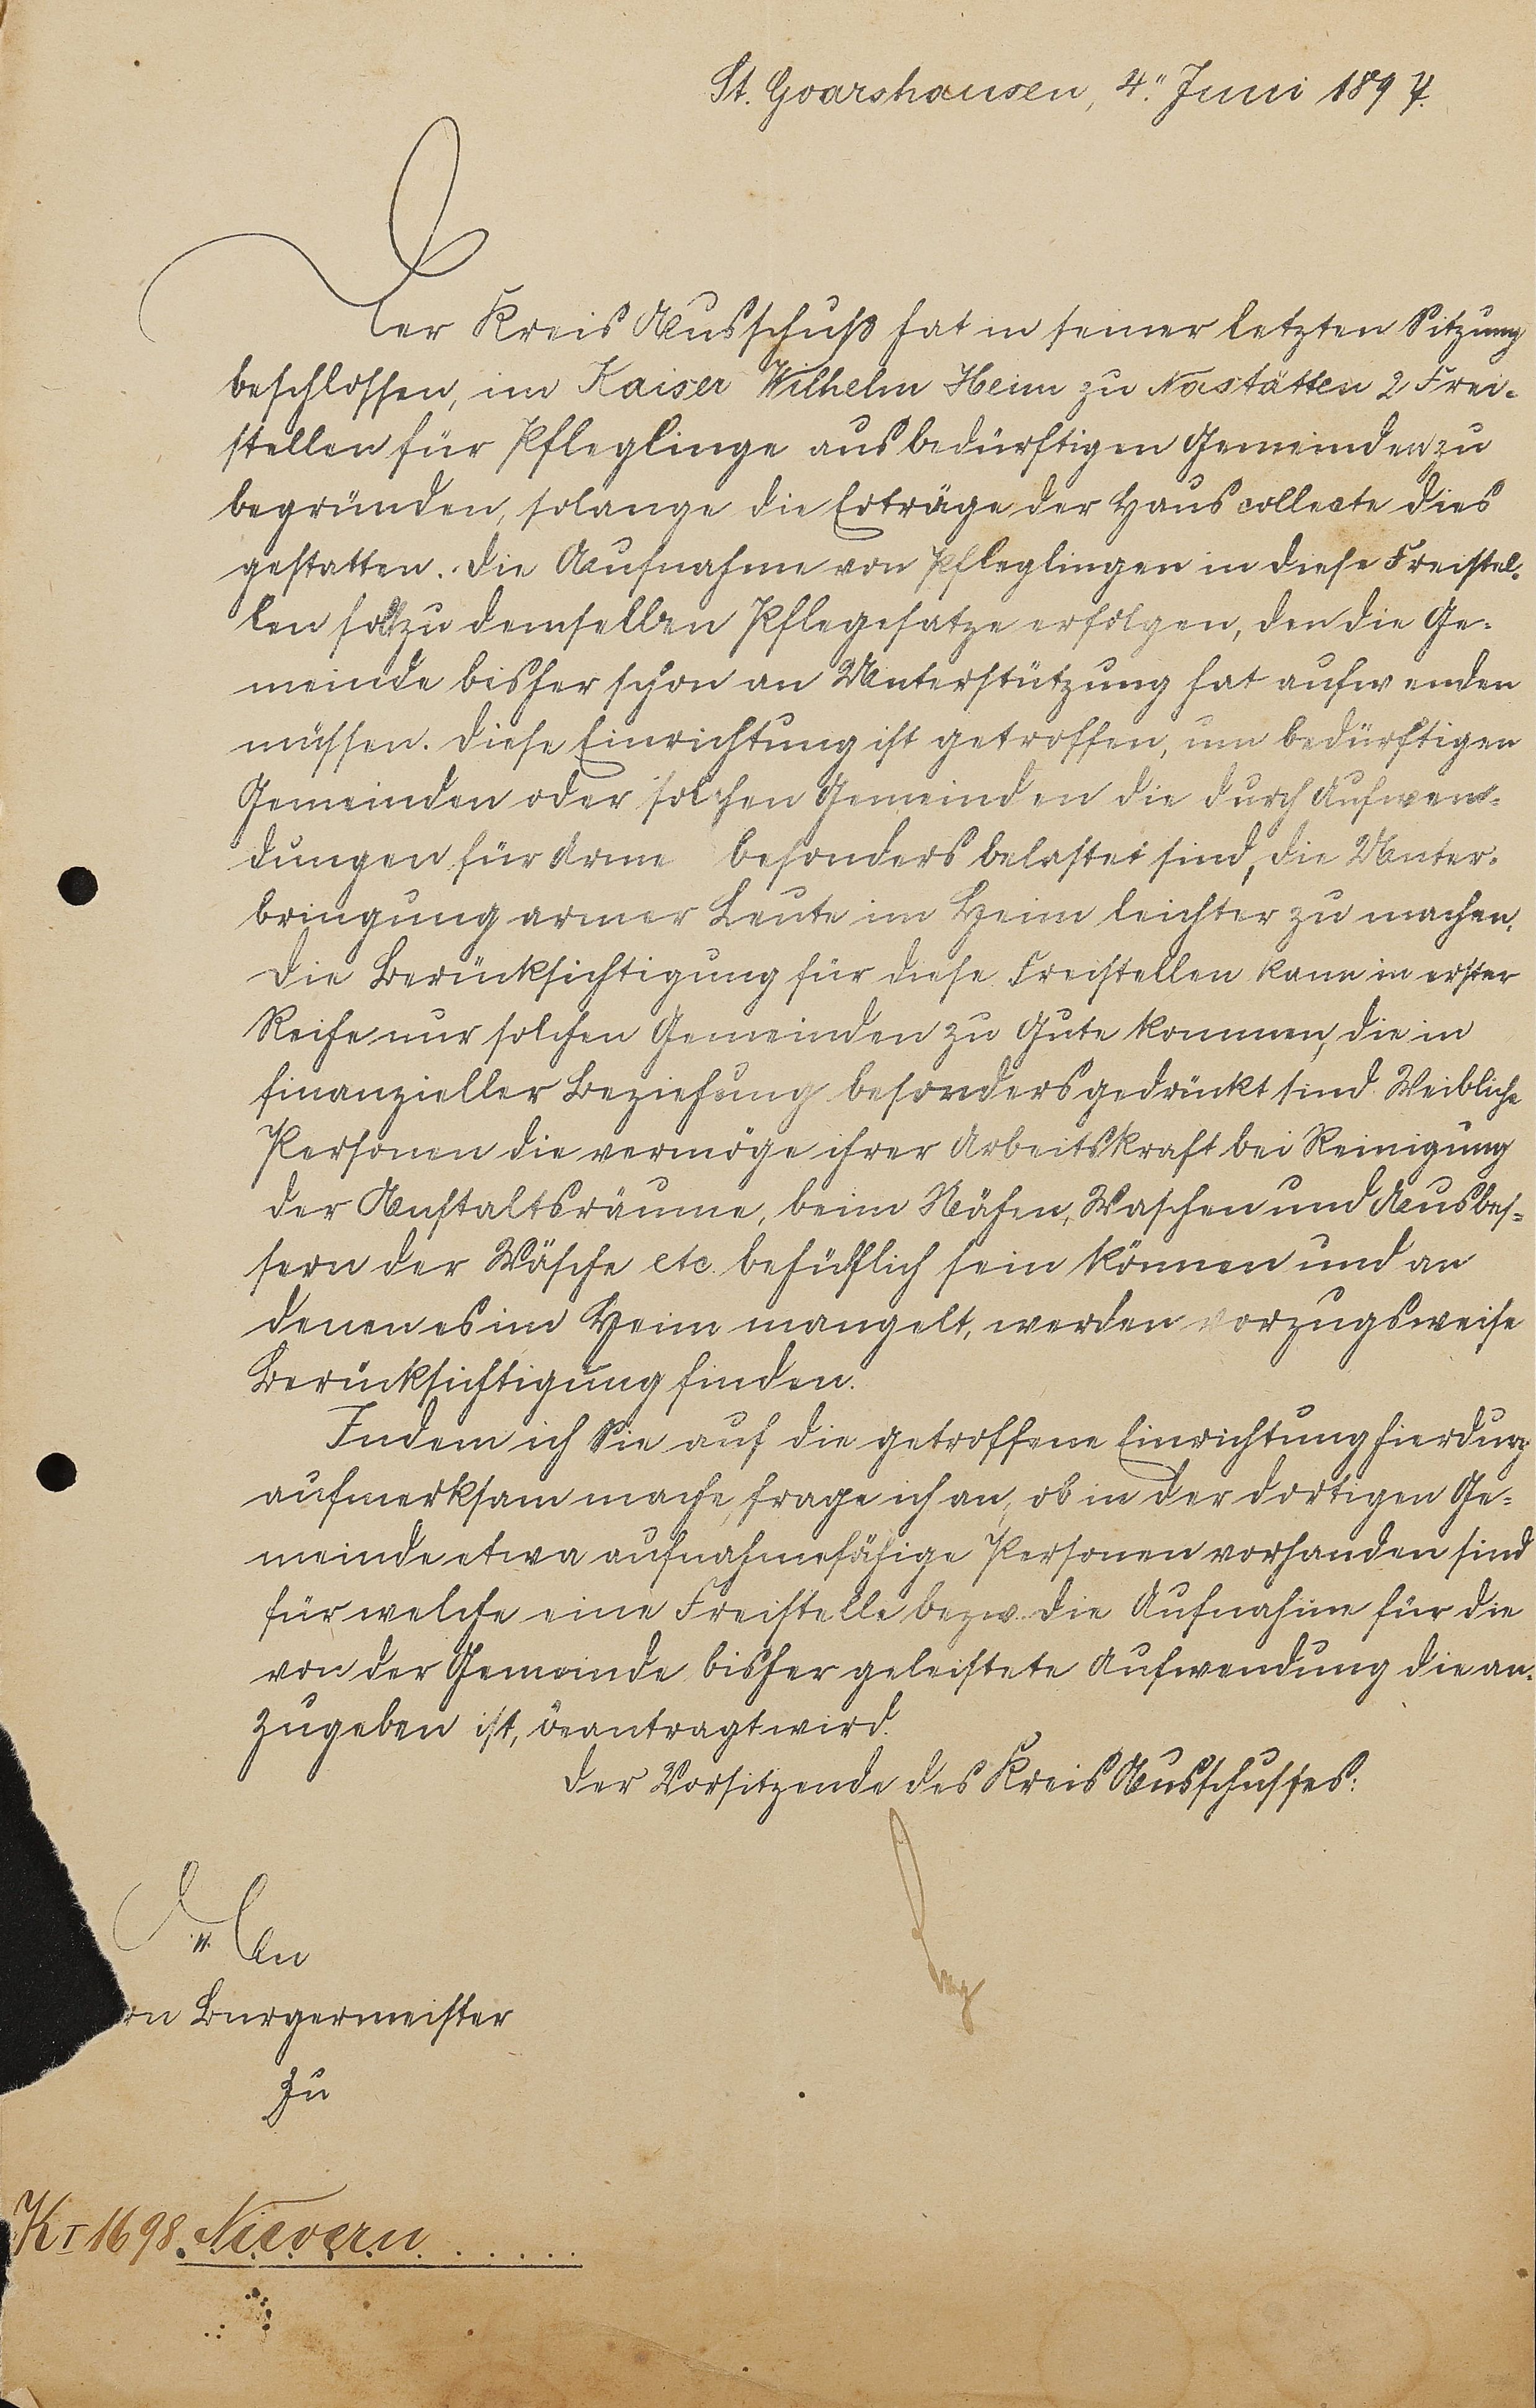 St. Goarshausen, 4. Juni 1897.
Der Kreis Ausschuß hat in seiner letzten Sitzung
beschlossen, im Kaiser Wilhelm Heim zu Nastätten 2 Frei-
stellen für Pfleglinge aus bedürftigen Gemeinden zu
begründen, solange die Erträge der Hauscollecte dies
gestatten. Die Aufnahme von Pfleglingen in diese Freistel-
len soll zu demselben Pflegesatze erfolgen, den die Ge-
meinde bisher schon an Unterstützung hat aufwenden
müssen. Diese Einrichtung ist getroffen, um bedürftigen
Gemeinden oder solchen Gemeinden die durch Aufwen-
dungen für Arme besonders belastet sind, die Unter-
bringung armer Leute im Heim leichter zu machen.
Die Berücksichtigung für diese Freistellen kann in erster
Reihe nur solchen Gemeinden zu Gute kommen, die in
finanzieller Beziehung besonders gedrückt sind. Weibliche
Personen die vermöge ihrer Arbeitskraft bei Reinigung
der Anstaltsräume, beim Nähen, Waschen und Ausbes-
sern der Wäsche etc. behülflich sein können und an
denen es im Heim mangelt, werden vorzugsweise
Berücksichtigung finden.
Indem ich Sie auf die getroffene Einrichtung hierdurch
aufmerksam mache, frage ich an, ob in der dortigen Ge-
meinde etwa aufnahmefähige Personen vorhanden sind
für welche eine Freistelle bezw. die Aufnahme für die
von der Gemeinde bisher geleistete Aufwendung die an-
zugeben ist, beantragt wird.
Der Vorsitzende des Kreis Ausschusses:
An
rn Burgermeister
zu
K I 1698. Nievern